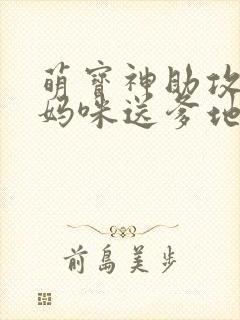 萌寶神助攻
媽咪送爹地
前島美步